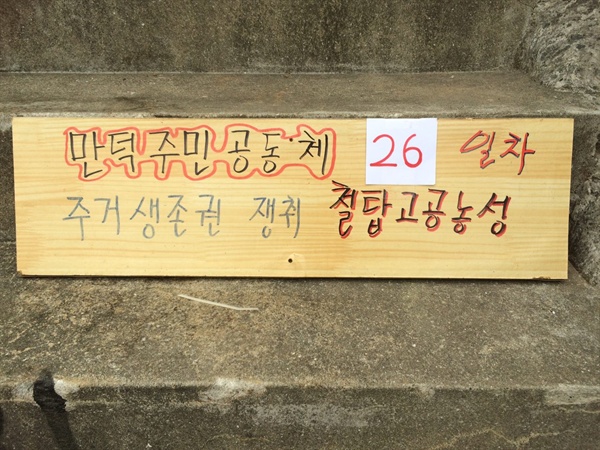 만덕주민공동체 26 일차
주거생존권 쟁취 철탑고공농성